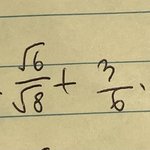 √6/√8 + 3/6